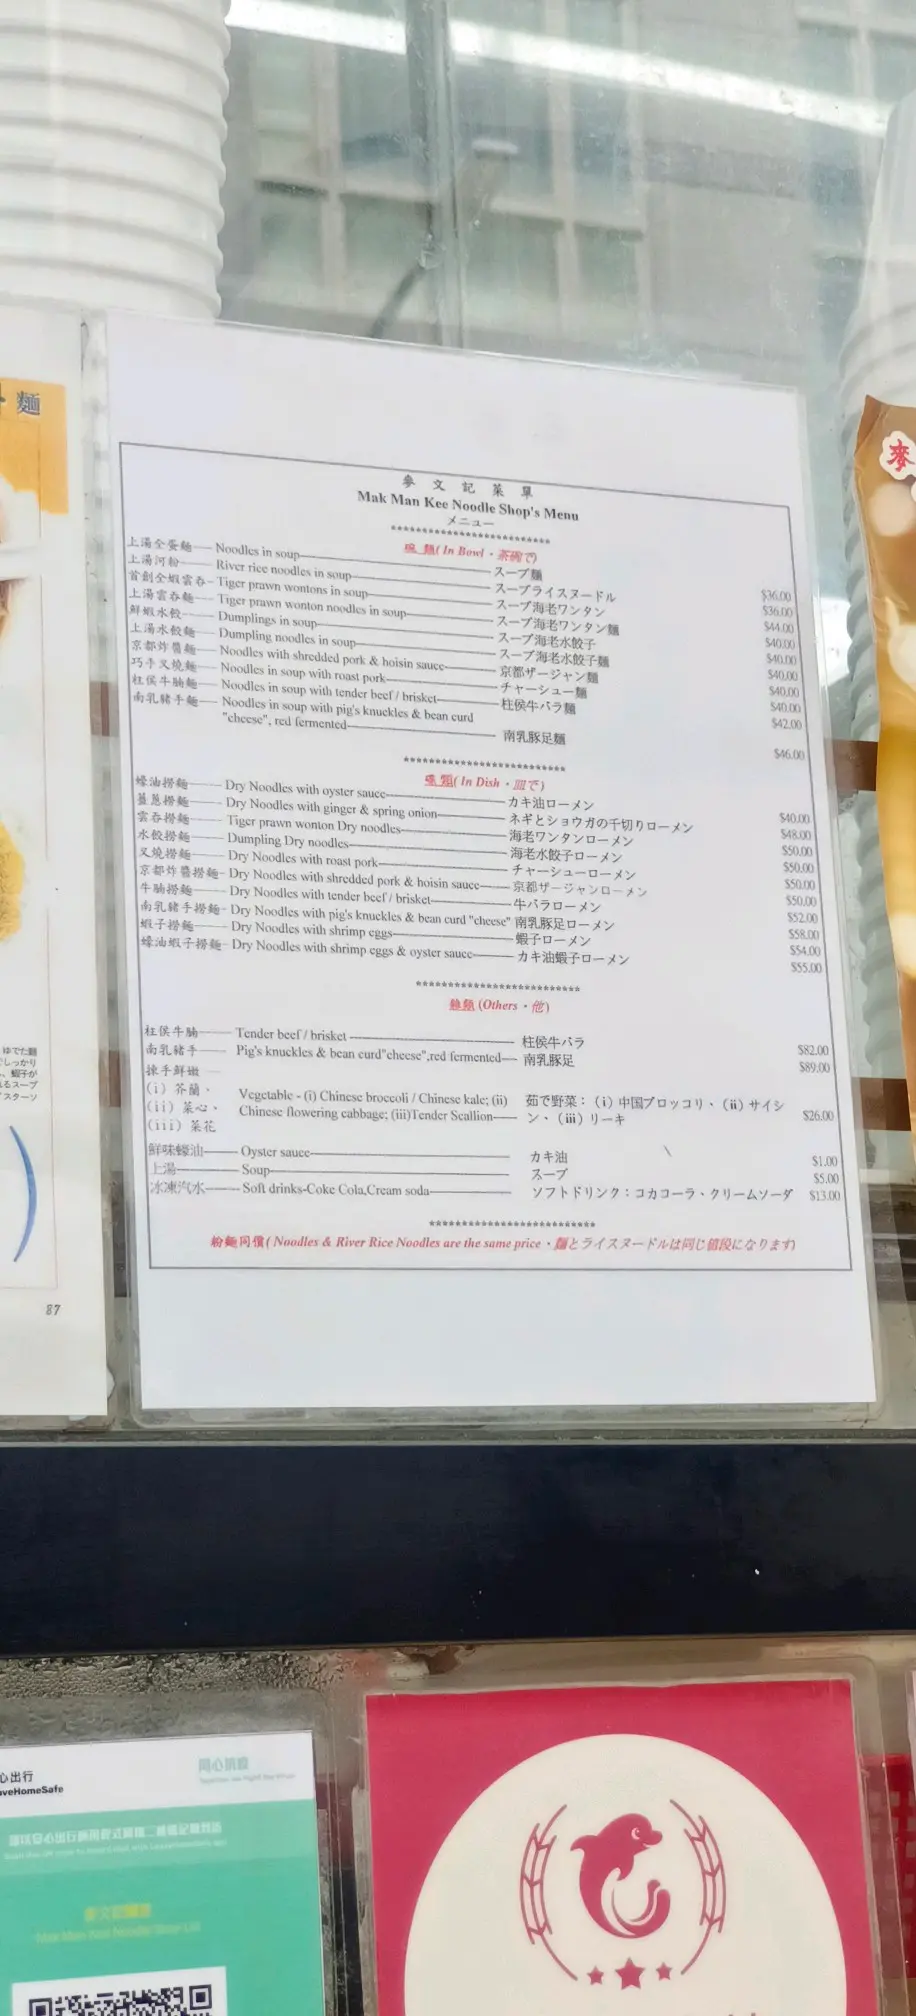 麵
麥
麥文記菜單
Mak Man Kee Noodle Shop's Menu
メニュー
**************************
碗 麵( In Bowl・茶碗で)
上湯全蛋麵 Noodles in soup スープ麵 $36.00
上湯河粉 River rice noodles in soup スープライスヌードル $36.00
首創全蝦雲吞 Tiger prawn wontons in soup スープ海老ワンタン $44.00
上湯雲吞麵 Tiger prawn wonton noodles in soup スープ海老ワンタン麵 $40.00
鮮蝦水餃 Dumplings in soup スープ海老水餃子 $40.00
上湯水餃麵 Dumpling noodles in soup スープ海老水餃子麵 $40.00
京都炸醬麵 Noodles with shredded pork & hoisin sauce 京都ザージャン麵 $40.00
巧手叉燒麵 Noodles in soup with roast pork チャーシュー麵 $40.00
柱侯牛腩麵 Noodles in soup with tender beef / brisket 柱侯牛バラ麵 $42.00
南乳豬手麵 Noodles in soup with pig's knuckles & bean curd
"cheese", red fermented 南乳豚足麵 $46.00
**************************
( In Dish・皿で)
蠔油撈麵 Dry Noodles with oyster sauce カキ油ローメン $40.00
薑蔥撈麵 Dry Noodles with ginger & spring onion ネギとショウガの千切りローメン $48.00
雲吞撈麵 Tiger prawn wonton Dry noodles 海老ワンタンローメン $50.00
水餃撈麵 Dumpling Dry noodles 海老水餃子ローメン $50.00
叉燒撈麵 Dry Noodles with roast pork チャーシューローメン $50.00
京都炸醬撈麵 Dry Noodles with shredded pork & hoisin sauce 京都ザージャンローメン $50.00
牛腩撈麵 Dry Noodles with tender beef / brisket 牛バラローメン $52.00
南乳豬手撈麵 Dry Noodles with pig's knuckles & bean curd "cheese" 南乳豚足ローメン $58.00
蝦子撈麵 Dry Noodles with shrimp eggs 蝦子ローメン $54.00
蠔油蝦子撈麵 Dry Noodles with shrimp eggs & oyster sauce カキ油蝦子ローメン $55.00
**************************
雜類 (Others・他)
柱侯牛腩 Tender beef / brisket 柱侯牛バラ $82.00
南乳豬手 Pig's knuckles & bean curd"cheese",red fermented 南乳豚足 $89.00
揀手鮮嫩
(i) 芥蘭、
(ii) 菜心、
(iii) 菜花
Vegetable - (i) Chinese broccoli / Chinese kale; (ii)
Chinese flowering cabbage; (iii)Tender Scallion
茹で野菜：(i) 中国ブロッコリ、(ii) サイシ
ン、(iii) リーキ $26.00
鮮味蠔油 Oyster sauce カキ油 $1.00
上湯 Soup スープ $5.00
冰凍汽水 Soft drinks-Coke Cola,Cream soda ソフトドリンク：コカコーラ・クリームソーダ $13.00
**************************
粉麵同價( Noodles & River Rice Noodles are the same price・麵とライスヌードルは同じ値段になります)
ゆでた麵
87
心出行
aveHomeSafe
同心抗疫